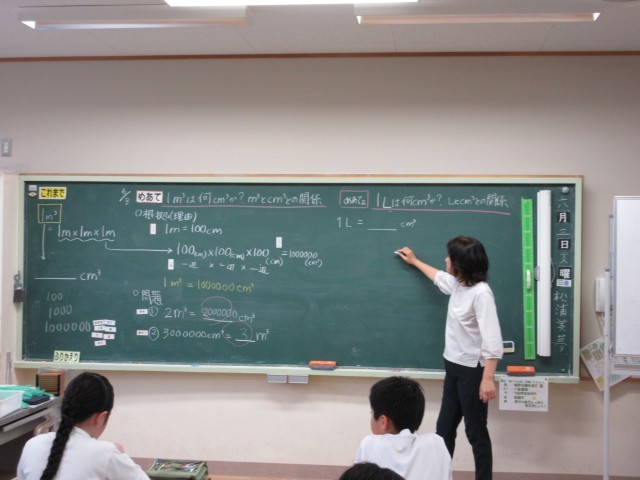 これまで
1m³
1m×1m×1m
cm³
100
1000
1000000
ふりかえり
6/3
めあて 1m³は何cm³か? m³とcm³との関係
○根拠(理由)
1m=100cm
100(cm)×100(cm)×100(cm)=1000000(cm³)
一辺×一辺×一辺
1m³=1000000cm³
○問題
① 2m³=2000000cm³
② 3000000cm³=3m³
めあて 1Lは何cm³か? Lとcm³との関係
1L=____cm³
六月三日
曜